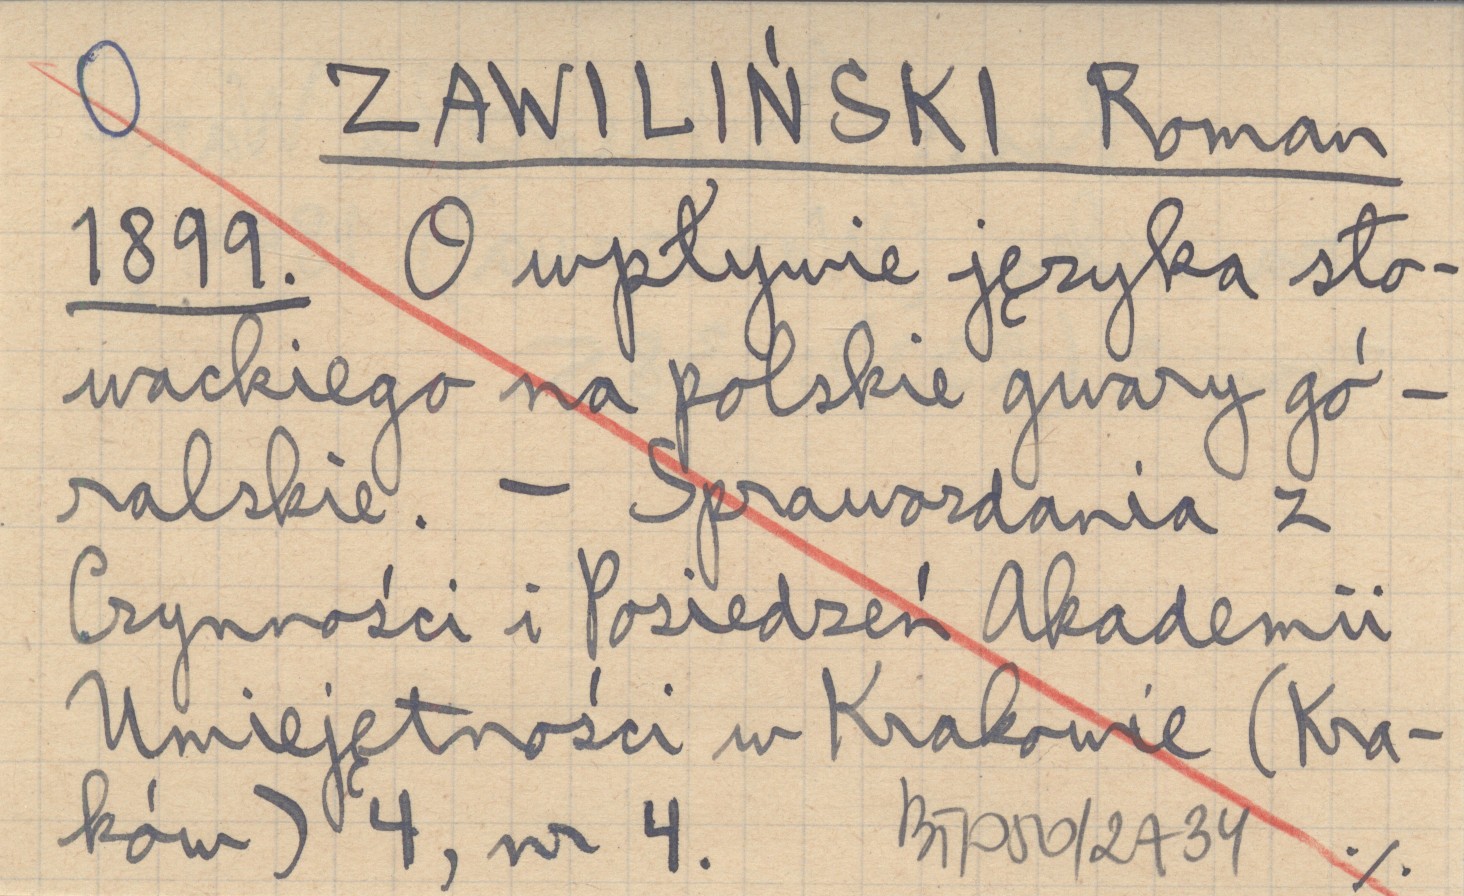 O ZAWILIŃSKI Roman
1899. O wpływie języka sło-
wackiego na polskie gwary gó-
ralskie. - Sprawozdania z
Czynności i Posiedzeń Akademii
Umiejętności w Krakowie (Kra-
ków) 4, nr 4.
./.